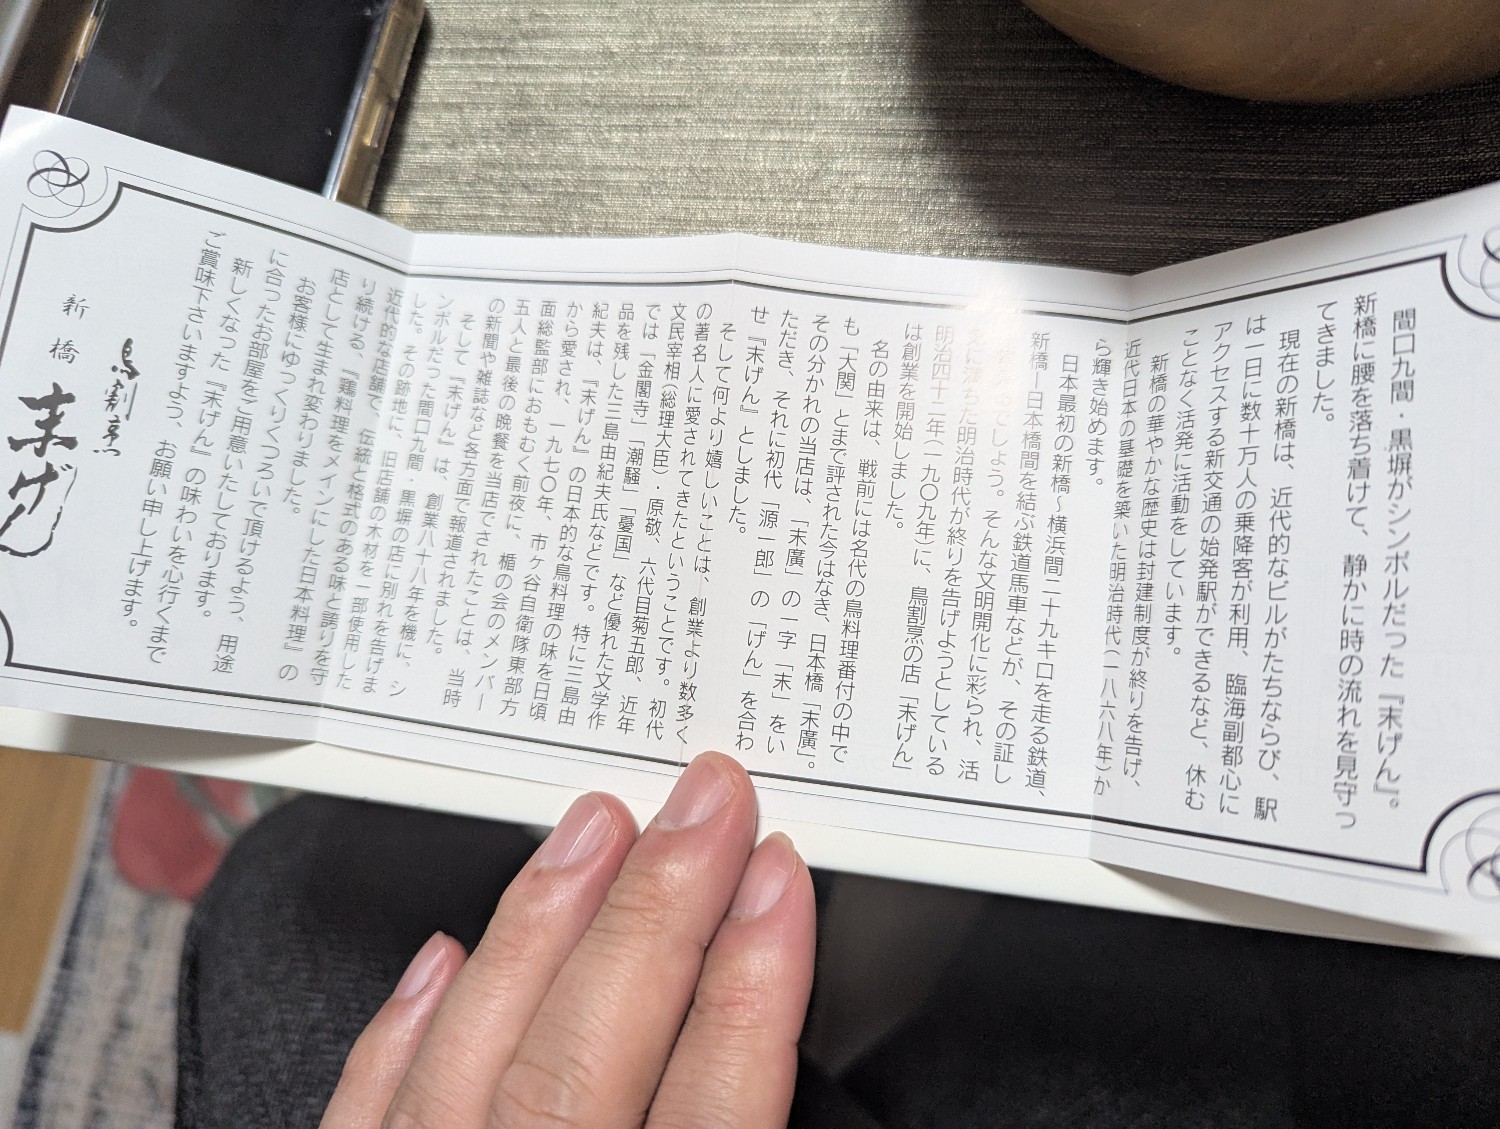 間口九間・黒塀がシンボルだった『末げん』。
新橋に腰を落ち着けて、静かに時の流れを見守っ
てきました。
現在の新橋は、近代的なビルがたちならび、駅
は一日に数十万人の乗降客が利用、臨海副都心に
アクセスする新交通の始発駅ができるなど、休む
ことなく活発に活動をしています。
新橋の華やかな歴史は封建制度が終りを告げ、
近代日本の基礎を築いた明治時代(一八六八年)か
ら輝き始めます。
日本最初の新橋〜横浜間二十九キロを走る鉄道、
新橋ー日本橋間を結ぶ鉄道馬車などが、その証し
でしょう。そんな文明開化に彩られ、活
ちた明治時代が終りを告げようとしている
明治四十二年(一九〇九年)に、鳥割烹の店「末げん」
は創業を開始しました。
名の由来は、戦前には名代の鳥料理番付の中で
も「大関」とまで評された今はなき、日本橋「末廣」。
その分かれの当店は、「末廣」の一字「末」をい
ただき、それに初代「源一郎」の「げん」を合わ
せ『末げん』としました。
そして何より嬉しいことは、創業より数多く
の著名人に愛されてきたということです。初代
文民宰相(総理大臣)・原敬、六代目菊五郎、近年
では「金閣寺」「潮騒」「憂国」など優れた文学作
品を残した三島由紀夫氏などです。特に三島由
紀夫は、『末げん』の日本的な鳥料理の味を日頃
から愛され、一九七〇年、市ヶ谷自衛隊東部方
面総監部におもむく前夜に、楯の会のメンバー
五人と最後の晩餐を当店でされたことは、当時
の新聞や雑誌など各方面で報道されました。
そして『末げん』は、創業八十八年を機に、シ
ンボルだった間口九間・黒塀の店に別れを告げま
した。その跡地に、旧店舗の木材を一部使用した
近代的な店舗で、伝統と格式のある味と誇りを守
り続ける、『鶏料理をメインにした日本料理』の
店として生まれ変わりました。
お客様にゆっくりくつろいで頂けるよう、用途
に合ったお部屋をご用意いたしております。
新しくなった『末げん』の味わいを心行くまで
ご賞味下さいますよう、お願い申し上げます。
鳥割烹
新橋 末げん